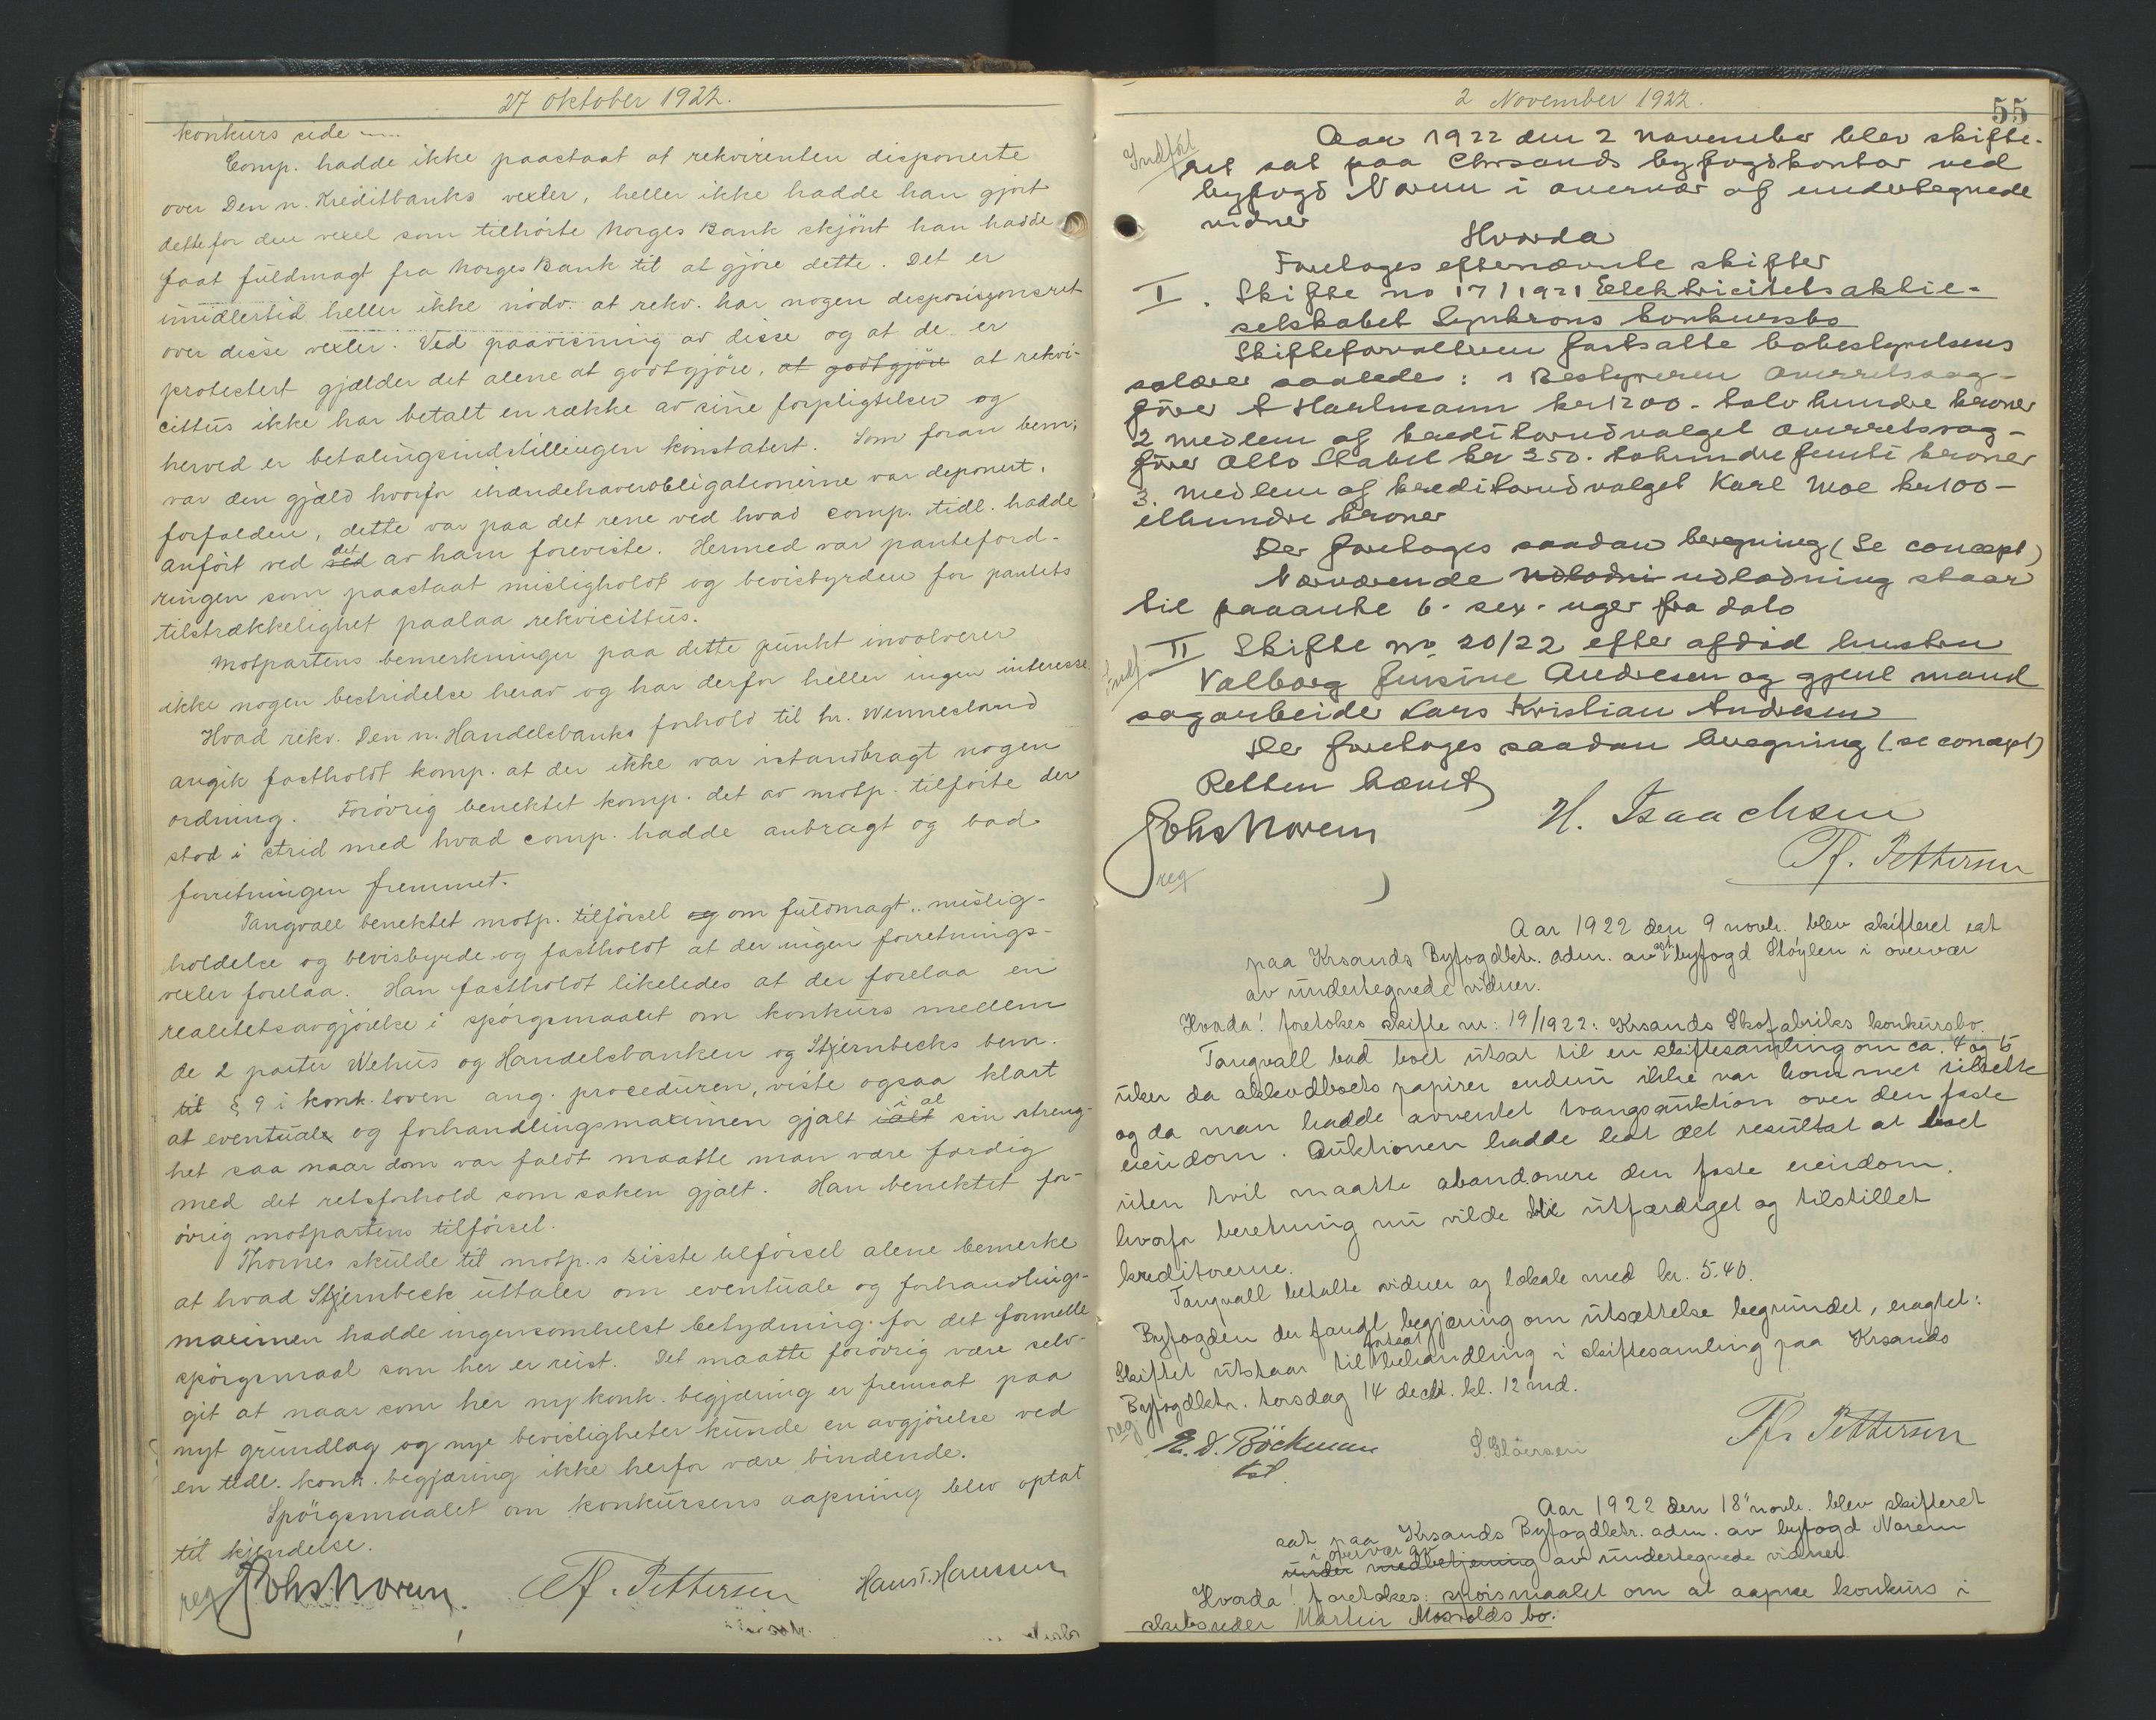 27 oktober 1922.
konkurs side
Comp. hadde ikke paastaat at rekvirenten disponerte
over Den n. Kreditbanks vexler, heller ikke hadde han gjort
dette for den vexel som tilhörte Norges Bank skjönt han hadde
faat fuldmagt fra Norges Bank til at gjöre dette. Det er
imidlertid heller ikke nödv. at rekv. har nogen disposisjonsret
over disse vexler. Ved paavisning av disse og at de er
protestert gjælder det alene at godtgjöre, at godtgjöre at rekvi-
cittus ikke har betalt en række av sine forpligtelser og
herved er betalingsindstillingen konstatert. Som foran bem;
var den gjæld hvorfor ihændehaverobligationerne var deponert,
forfalden, dette var paa det rene ved hvad comp. tidl. hadde
anfört ved det av ham foreviste. Hermed var panteford-
ringen som paastaat misligholdt og bevisbyrden for pantets
tilstrækkelighet paalaa rekvicittus.
Motpartens bemerkninger paa dette punkt involverer
ikke nogen bestridelse herav og har derfor heller ingen interesse.
Hvad rekv. Den n. Handelsbanks forhold til hr. Wennesland
angik fastholdt komp. at der ikke var istandbragt nogen
ordning. Forövrig benektet komp. det av motp. tilförte der
stod i strid med hvad comp. hadde anbragt og bad
forretningen fremmet.
Tangvall benektet motp. tilförsel og om fuldmagt, mislig-
holdelse og bevisbyrde og fastholdt at der ingen forretnings-
vexler forelaa. Han fastholdt likeledes at der forelaa en
realitetsavgjörelse i spörgsmaalet om konkurs mellem
de 2 parter Wehus og Handelsbanken og Stjernbecks bem.
til § 9 i konk. loven ang. proceduren, viste ogsaa klart
at eventuale og forhandlingsmaximen gjalt i al sin streng-
het saa naar dom var faldt maatte man være færdig
med det retsforhold som saken gjalt. Han benektet for-
övrig motpartens tilförsel.
Thornes skulde til motp.s sisste tilförsel alene bemerke
at hvad Stjernbeck uttaler om eventuale og forhandlings-
maximen hadde ingensomhelst betydning for det formelle
spörgsmaal som her er reist. Det maatte forövrig være selv-
git at naar som her ny konk. begjæring er fremsat paa
nyt grundlag og nye bevisligheter kunde en avgjörelse ved
en tidl. konk. begjæring ikke herfor være bindende.
Spörgsmaalet om konkursens aapning blev optat
til kjendelse.
reg Johs Norem. Tf. Pettersen Hans T. Hanssen
2 November 1922.
55
Indført
Aar 1922 den 2 november blev skifte-
ret sat paa Chrsands byfogdkontor ved
byfogd Norem i overvær af undertegnede
vidner
Hvorda
Foretages efternævnte skifter
I. Skifte no 17/1921 Elektricitetsaktie-
selskabet Synkrons konkursbo
Skifteforvalteren fastsatte bobestyrelsens
salærer saaledes: 1 Bestyreren Overretssag-
fører A Hartmann kr 1200 - tolv hundre kroner
2 medlem af kreditorudvalget overretssag-
fører Otto Stabel kr 250. tohundre femti kroner
3. medlem af kreditorudvalget Karl Moe kr 100 -
ethundre kroner
Der foretages saadan beregning (Se concept)
Nærværende udlodni udlodning staar
til paaanke 6 - sex - uger fra dato
Indf
II Skifte no 20/22 efter afdöd hustru
Valborg Jensine Andresen og gjenl mand
sagarbeider Lars Kristian Andresen
Der foretages saadan beregning (se concept)
Retten hævet
Johs Norem H. Isaachsen
Tf. Pettersen
reg
Aar 1922 den 9 novbr. blev skifteret sat
paa Krsands Byfogdktr. adm. av byfogd Stöylen i overvær
av undertegnede vidner.
Hvorda! foretokes skifte nr: 19/1922: Krsands Skofabriks konkursbo.
Tangvall bad boet utsat til en skiftesamling om ca. 4 og 5
uker da akkordboets papirer endnu ikke var kommet tilrette
og da man hadde avventet tvangsauktion over den faste
eiendom. Auktionen hadde hat det resultat at boet
uten tvil maatte abandonere den faste eiendom,
hvorfor beretning nu vilde bli utfærdiget og tilstillet
kreditorerne.
Tangvall betalte vidner og lokale med kr. 5.40.
Byfogden der fandt begjæring om utsættelse begrundet, eragtet:
Skiftet utstaar til fortsat behandling i skiftesamling paa Krsands
Byfogdktr. torsdag 14 decbr. kl. 12 md.
reg
E. D. Böckman Tf. Pettersen
Aar 1922 den 18" novbr. blev skifteret
sat paa Krsands Byfogdktr. adm. av byfogd Norem
i overvær av
under medbetjening av undertegnede vidner
Hvorda! foretokes: spörsmaalet om at aapne konkurs i
skibsreder Martin Mosvolds bo.